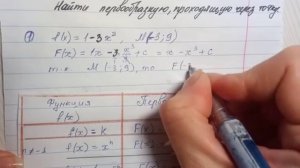 Найти первообразную, проходящую через точку
① f(x) = 1 - 3x² M(-3; 9)
F(x) = 1x - 3 · x³/3 + C = x - x³ + C
т.к. M(-3; 9), то F(-3
Функция Перво
f(x)
f(x) = k F(x) =
n ≠ -1 f(x) = xⁿ F(x)